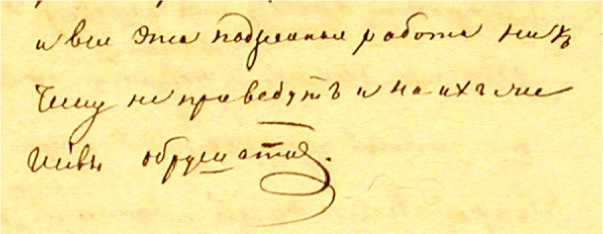 и вся эта подземная работа ни къ
чему не приведутъ и на ихъ
обрушится.